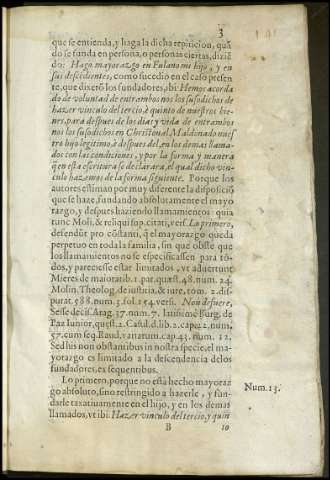 3
que se entienda, y haga la dicha repiticion, quã
do se fanda en persona, o personas ciertas, dizië
do: Hago mayorazgo en Fulano mi hijo, y en
sus descẽdientes, como sucedio en el caso presen
te, que dixerõ los fundadores, ibi: Hemos acorda
do de voluntad de entrambos nos los susodichos de
hazer vinculo del tercio, è quinto de nuestros bie-
nes, para despues de los dias y vida de entrambos
nos los susodichos en Christoual Maldonado nues
tro hijo legitimo, è despues del, en los demas llama-
dos con las condiciones, y por la forma y manera
q̃ en esta escritura se declararà, el qual dicho vin-
culo hazemos de la forma siguiente. Porque los
autores estiman por muy diferente la disposiciõ
que se haze, fundando absolutamente el mayo
razgo, y despues haziendo llamamientos: quia
tunc Moli. & reliqui sup. citati, vers. Lo primero,
defendũt pro cõstãti, q̃ el mayorazgo queda
perpetuo en toda la familia, sin que obste que
los llamamientos no se especificassen para to-
dos, y pareciesse estar limitados, vt aduertunt
Mieres de maiorat. 1. par. quæst. 48. num. 24.
Molin. Theolog. de iustitia, & iure, tom. 2. dis-
putat. 588. num. 3. fol. 254. vers. Non defuere,
Sesse decis. Arag. 37. num. 7. latissimè Burg. de
Paz Iunior, quæst. 2. Castil. d. lib. 2. cap. 22. num.
57. cum seq. Raud. vbi supr. cap. 43. num. 12.
Sed his non obstantibus in nostra specie, el ma-
yorazgo es limitado a la descendencia de los
fundadores, ex sequentibus.
Lo primero, porque no està hecho mayoraz
go absoluto, sino restringido a hazerle, y fun-
darle taxatiuamente en el hijo, y en los demas
llamados, vt ibi: Hazer vinculo del tercio, y quin
Num. 13.
B
to